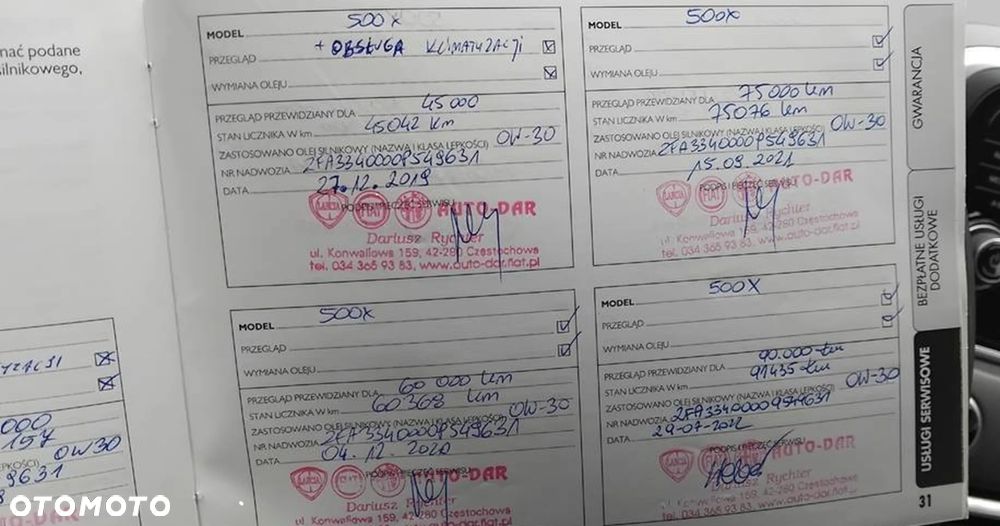 nać podane
silnikowego,
MODEL 500X
PRZEGLĄD + OBSŁUGA KLIMATYZACJI
WYMIANA OLEJU
PRZEGLĄD PRZEWIDZIANY DLA 45000
STAN LICZNIKA W km 45042 km
ZASTOSOWANO OLEJ SILNIKOWY (NAZWA I KLASA LEPKOŚCI) 0W-30
NR NADWOZIA ZFA3340000P549631
DATA 27.12.2019
PODPIS I PIECZĘĆ SERWISU
LANCIA FIAT AUTO-DAR
Dariusz Rychter
ul. Konwaliowa 159, 42-280 Częstochowa
tel. 034 365 93 83, www.auto-dar.fiat.pl
MODEL 500X
PRZEGLĄD
WYMIANA OLEJU
PRZEGLĄD PRZEWIDZIANY DLA 75000 km
STAN LICZNIKA W km 75076 km
ZASTOSOWANO OLEJ SILNIKOWY (NAZWA I KLASA LEPKOŚCI) 0W-30
NR NADWOZIA ZFA3340000P549631
DATA 15.09.2021
PODPIS I PIECZĘĆ SERWISU
LANCIA FIAT AUTO-DAR
Dariusz Rychter
ul. Konwaliowa 159, 42-280 Częstochowa
tel. 034 365 93 83, www.auto-dar.fiat.pl
MODEL 500X
PRZEGLĄD
WYMIANA OLEJU
PRZEGLĄD PRZEWIDZIANY DLA 60 000 km
STAN LICZNIKA W km 60368 km
ZASTOSOWANO OLEJ SILNIKOWY (NAZWA I KLASA LEPKOŚCI) 0W-30
NR NADWOZIA ZFA3340000P549631
DATA 04.12.2020
PODPIS I PIECZĘĆ SERWISU
LANCIA AUTO-DAR
Dariusz Rychter
ul. Konwaliowa 159, 42-280 Częstochowa
MODEL 500X
PRZEGLĄD
WYMIANA OLEJU
PRZEGLĄD PRZEWIDZIANY DLA 90.000 km
STAN LICZNIKA W km 91435 km
ZASTOSOWANO OLEJ SILNIKOWY (NAZWA I KLASA LEPKOŚCI) 0W-30
NR NADWOZIA ZFA3340000P549631
DATA 29-07-2022
PODPIS I PIECZĘĆ SERWISU
AUTO-DAR
Dariusz Rychter
YZACJI
000
157
LEPKOŚCI) 0W30
9631
GWARANCJA
BEZPŁATNE USŁUGI
DODATKOWE
USŁUGI SERWISOWE
31
OTOMOTO